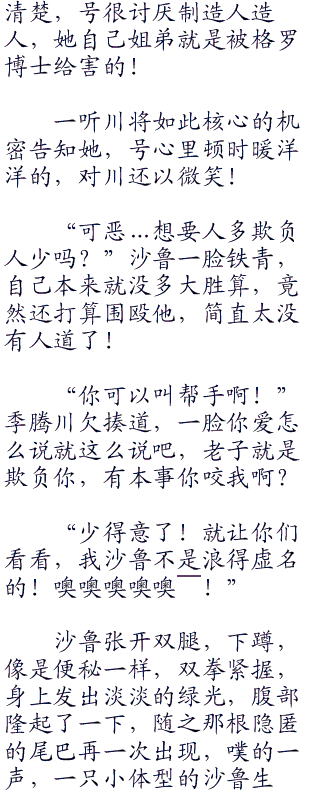 清楚，号很讨厌制造人造
人，她自己姐弟就是被格罗
博士给害的！
一听川将如此核心的机
密告知她，号心里顿时暖洋
洋的，对川还以微笑！
“可恶…想要人多欺负
人少吗？”沙鲁一脸铁青，
自己本来就没多大胜算，竟
然还打算围殴他，简直太没
有人道了！
“你可以叫帮手啊！”
季腾川欠揍道，一脸你爱怎
么说就这么说吧，老子就是
欺负你，有本事你咬我啊？
“少得意了！就让你们
看看，我沙鲁不是浪得虚名
的！噢噢噢噢噢￣！”
沙鲁张开双腿，下蹲，
像是便秘一样，双拳紧握，
身上发出淡淡的绿光，腹部
隆起了一下，随之那根隐匿
的尾巴再一次出现，噗的一
声，一只小体型的沙鲁生